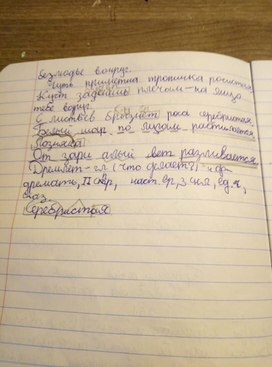 Безлюдье вокруг.
Чуть приметна тропинка росистая
Куст заденешь плечом - на лицо
тебе вдруг
С листьев брызнет роса серебристая
Белый пар по лугам расстилается
От зари алый свет разливается
Дремлет - гл (что делает?) н.ф.
дремать, II спр, наст. вр, 3 л, ед. ч,
Серебристая